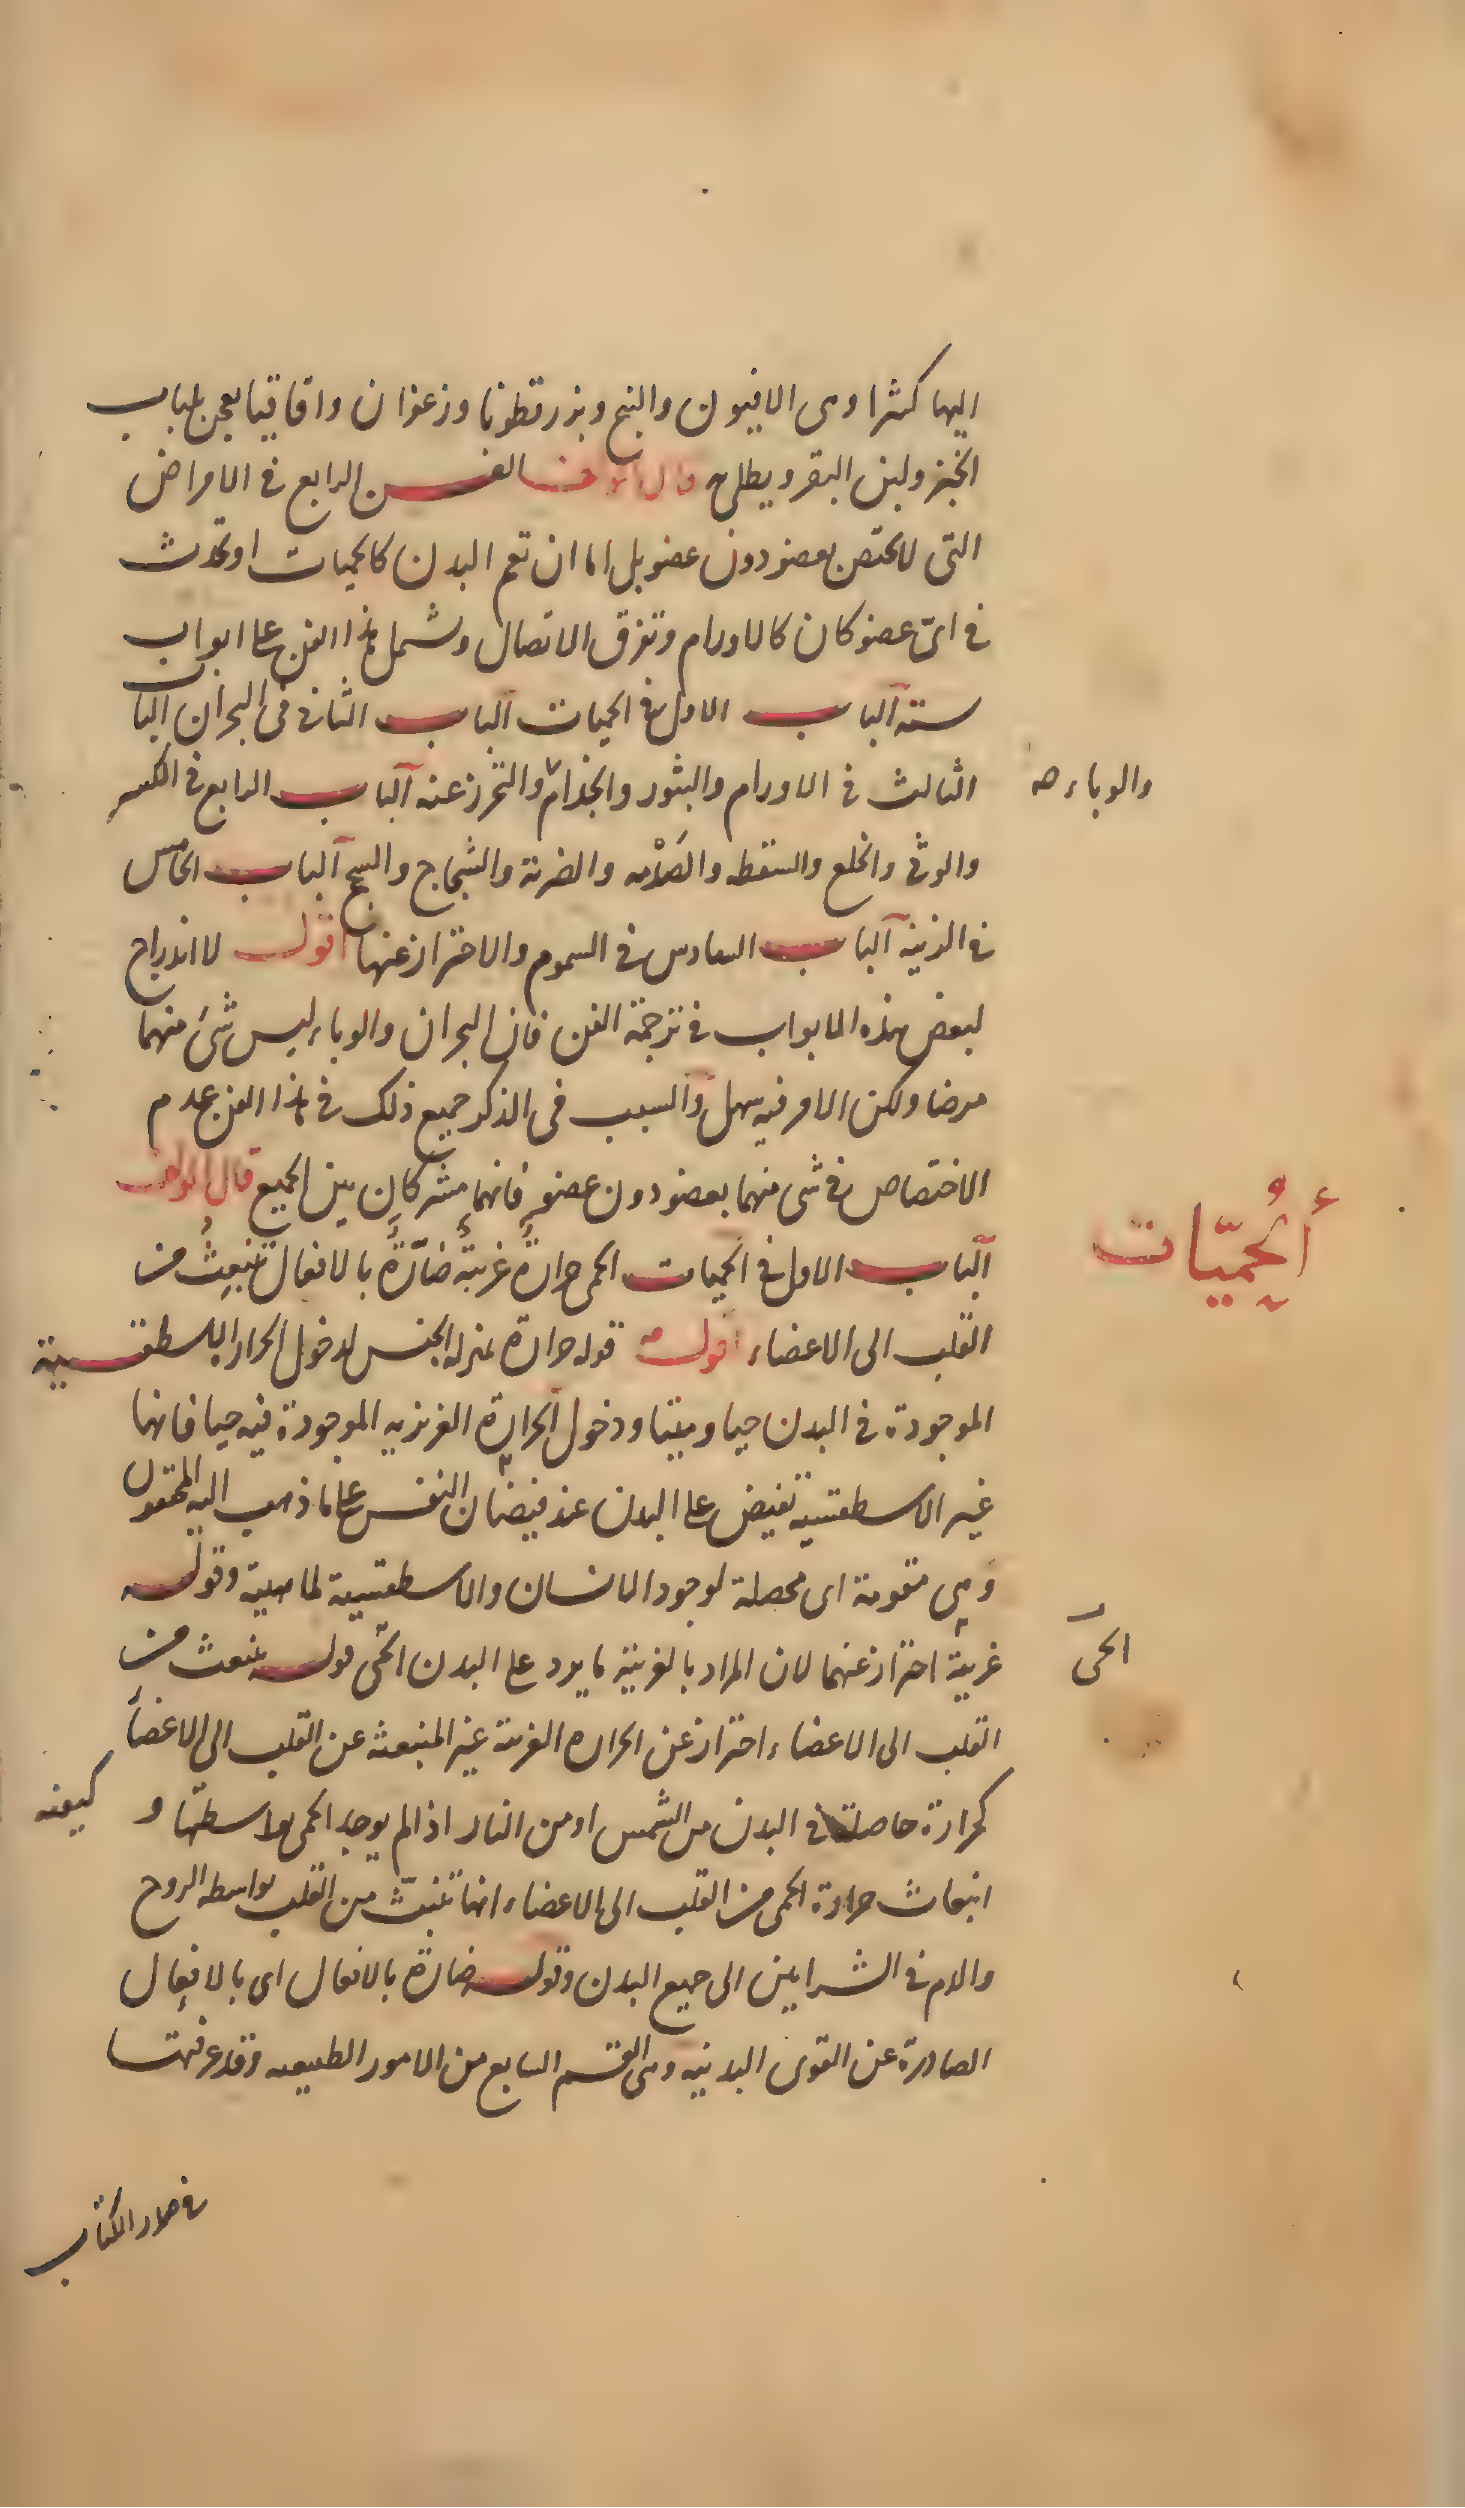 اليها كثيرا وهى الافيون والبنج وبزرقطونا وزعفران واقاقيا يعجن بلباب
الخبز ولبن البقر ويطلى به قال المؤلف الفن الرابع فى الامراض
التى لا تختص بعضو دون عضو بل اما ان تعم البدن كالحميات او تحدث
فى اىّ عضو كان كالاورام وتفرق الاتصال ويشمل هذا الفن على ابواب
ستة الباب الاول فى الحميات الباب الثانى فى البحران الباب
الثالث فى الاورام والبثور والجذام والتحرز عنه الباب الرابع فى الكسر
والوباء صح
والوثى والخلع والسقطه والصَدْمه والضربة والشجاج والسحج الباب الخامس
فى الزينه الباب السادس فى السموم والاحتراز عنها اقول لا اندراج
لبعض هذه الابواب فى ترجمة الفن فان البحران والوباء ليس شئ منهما
مرضا ولكن الامر فيه سهل والسبب فى الذكر جميع ذلك فى هذا الفن عدم
الاختصاص فى شى منهما بعضو دون عضوٍ فانهما مشتركان بين الجميع قال المؤلف
أَلحُميّات
الباب الاول فى الحُميات الحمى حرارةٌ غريبةٌ ضَارّةٌ بالافعال تنبعِثُ من
القلب الى الاعضاء اقول قوله حرارة بمنزله الجنس لدخول الحرارة الاسطقسية
الموجودة فى البدن حيا وميتا ودخول الحرارة الغريزيه الموجودة فيه حيا فانها
غير الاسطقسية تفيض على البدن عند فيضان النفس على ما ذهب اليه المحققون
وهى مقومة اى محصلة لوجود الانسان والاسطقسية لماهيته وقوله
غريبة احتراز عنهما لان المراد بالغريبة ما يرد على البدن الحَى قوله تنبعث من
الحىّ
القلب الى الاعضاء احتراز عن الحراره الغريبة غير المنبعثه عن القلب الى الاعضاء
كحرارة حاصلة فى البدن من الشمس او من النار اذا لم يوجد الحمى بواسطتها و كيفيه
انبعاث حرارة الحمى من القلب الى الاعضاء انها تنبث من القلب بواسطه الروح
والدم فى الشرايين الى جميع البدن وقوله ضارة بالافعال اى بالافعال
الصادرة عن القوى البدنيه وهى القسم السابع من الامور الطبيعيه وقد عرفتها
فى صدر الكتاب